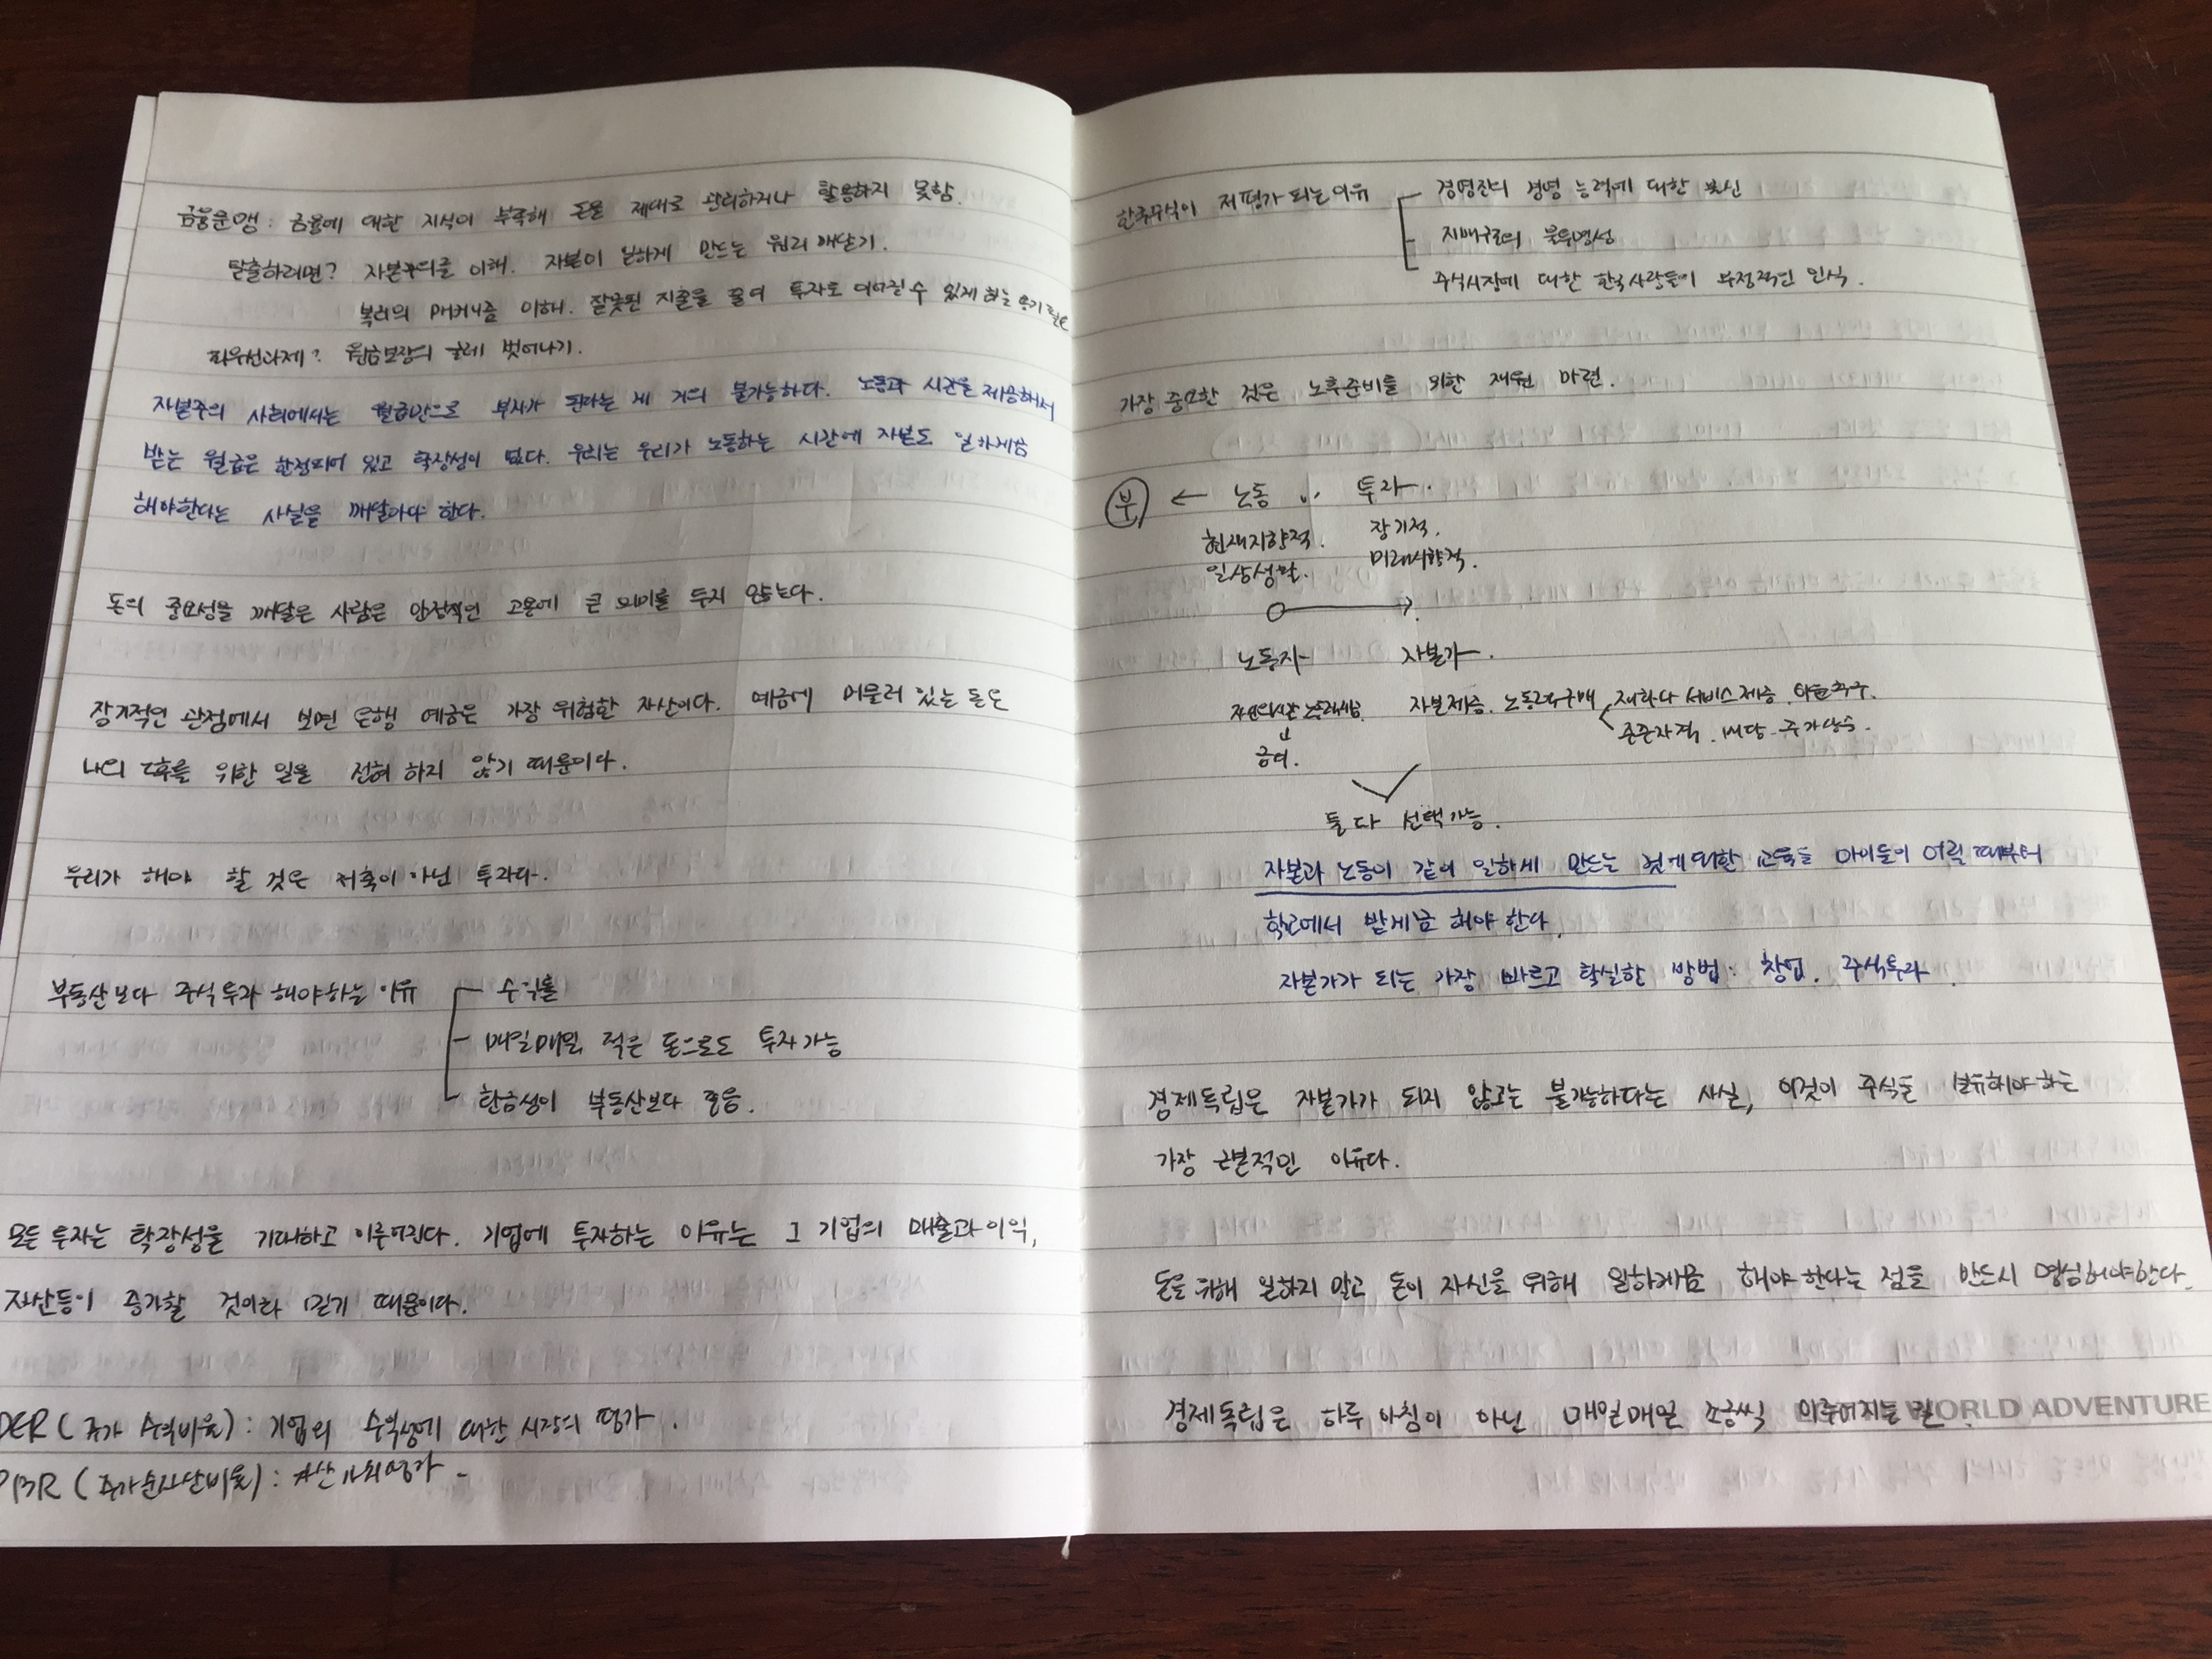 금융문맹: 금융에 대한 지식이 부족해 돈을 제대로 관리하거나 활용하지 못함.
탈출하려면? 자본주의를 이해. 자본이 일하게 만드는 원리 깨닫기.
복리의 매커니즘 이해. 잘못된 지출을 줄여 투자로 이어질 수 있게 하는 용기 필요
최우선과제? 원금보장의 굴레 벗어나기.
자본주의 사회에서는 월급만으로 부자가 된다는 게 거의 불가능하다. 노동과 시간을 제공해서
받는 월급은 한정되어 있고 확장성이 없다. 우리는 우리가 노동하는 시간에 자본도 일하게끔
해야한다는 사실을 깨달아야 한다.
돈의 중요성을 깨달은 사람은 안정적인 고용에 큰 의미를 두지 않는다.
장기적인 관점에서 보면 은행 예금은 가장 위험한 자산이다. 예금에 머물러 있는 돈은
나의 노후를 위한 일을 전혀 하지 않기 때문이다.
우리가 해야 할 것은 저축이 아닌 투자다.
부동산보다 주식투자 해야하는 이유
수익률
매일매일, 적은 돈으로도 투자가능
환금성이 부동산보다 좋음.
모든 투자는 확장성을 기대하고 이루어진다. 기업에 투자하는 이유는 그 기업의 매출과 이익,
자산등이 증가할 것이라 믿기 때문이다.
PER (주가 수익비율): 기업의 수익성에 대한 시장의 평가.
PBR (주가순자산비율):
한국주식이 저평가 되는 이유
경영진의 경영 능력에 대한 불신
지배구조의 불투명성
주식시장에 대한 한국사람들이 부정적인 인식.
가장 중요한 것은 노후준비를 위한 재원 마련.
부 ← 노동 투자.
현재지향적. 장기적.
일상생활. 미래지향적.
노동자 자본가.
자본제공. 노동력구매 재화나 서비스 제공. 이윤추구.
배당. 주가상승.
급여.
둘 다 선택가능.
자본과 노동이 같이 일하게 만드는 것에 대한 교육을 아이들이 어릴 때부터
학교에서 받게끔 해야 한다.
자본가가 되는 가장 빠르고 확실한 방법: 창업. 주식투자.
경제독립은 자본가가 되지 않고는 불가능하다는 사실, 이것이 주식을 보유해야하는
가장 근본적인 이유다.
돈을 위해 일하지 말고 돈이 자신을 위해 일하게끔 해야 한다는 점을 반드시 명심해야한다.
경제독립은 하루 아침이 아닌 매일매일 조금씩 이루어지는 일.
WORLD ADVENTURE